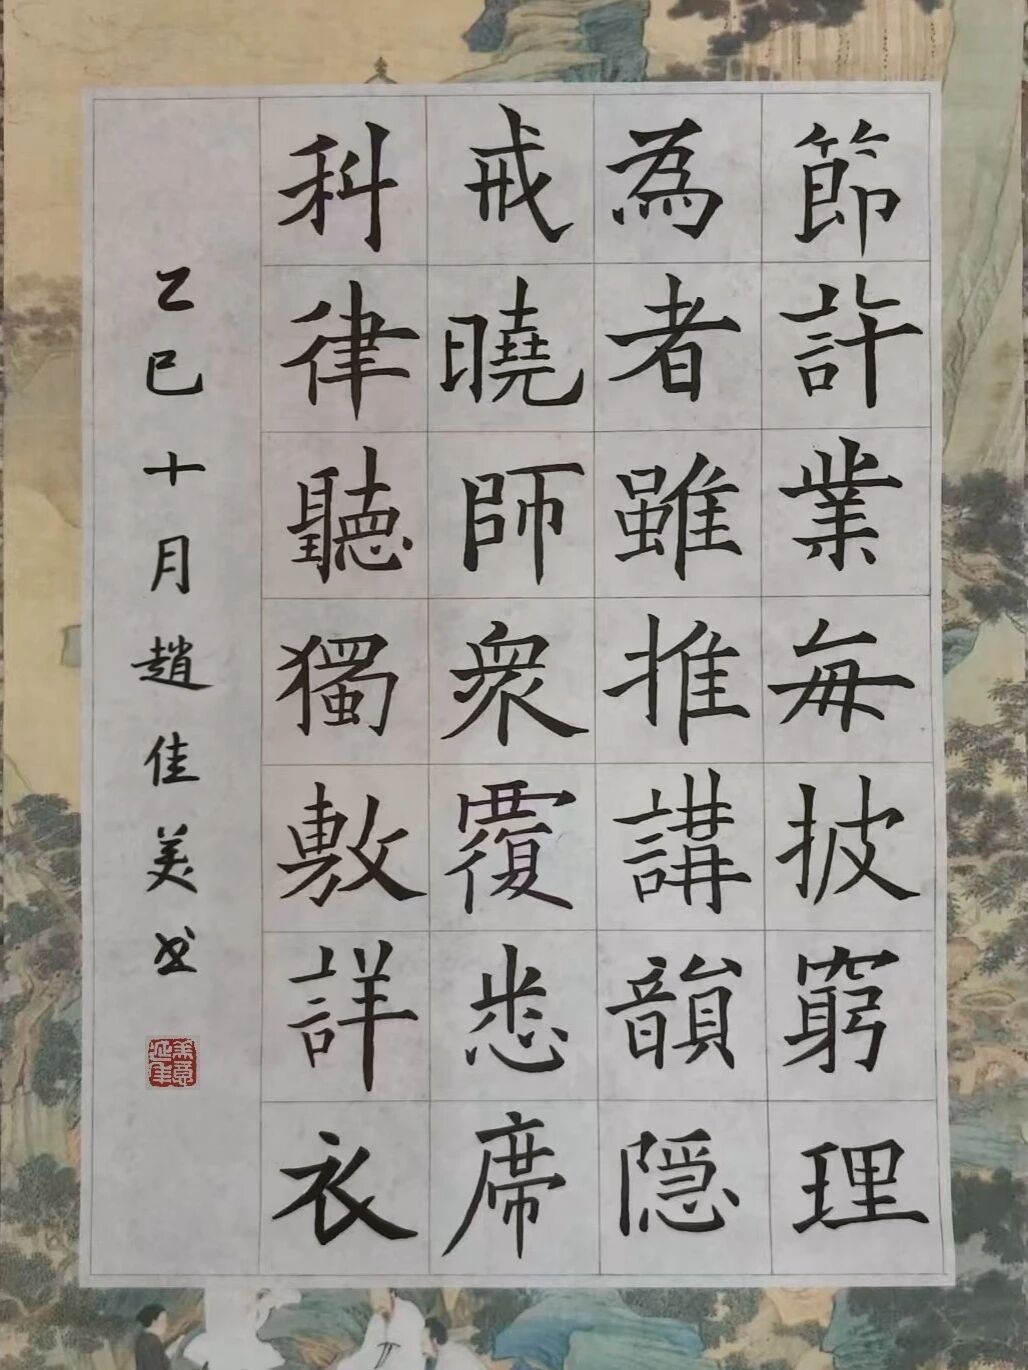 節許業每披窮理
為者雖推講韻隠
戒曉師衆覆悉席
科律聽獨敷詳衣
乙巳十月趙佳美书